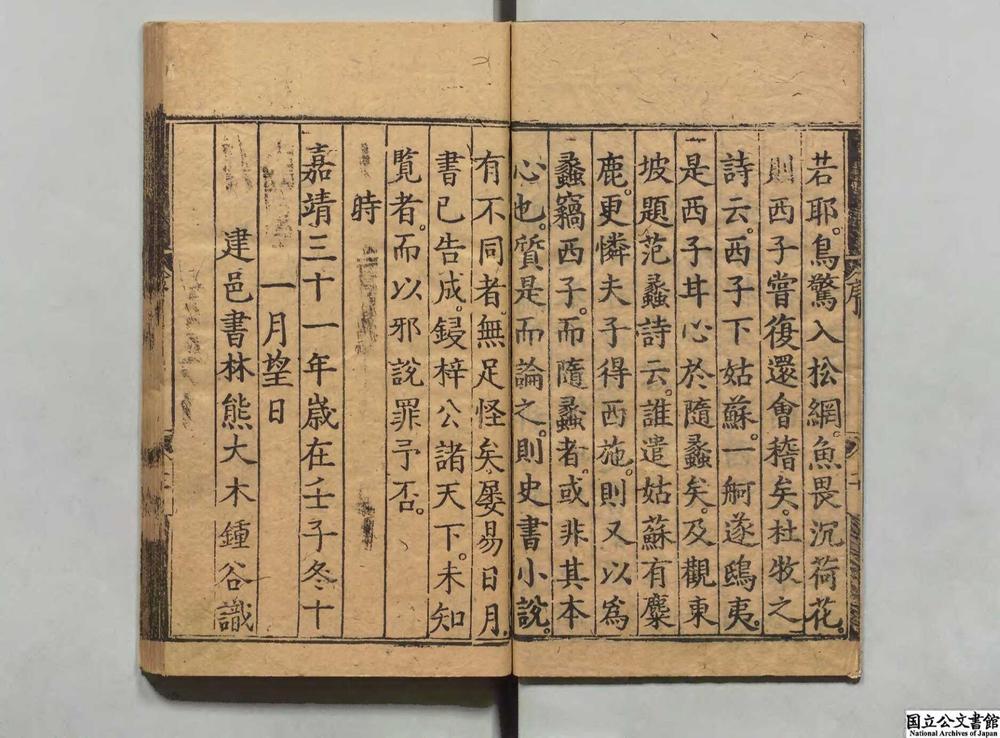 若耶。鳥驚入松網。魚畏沉荷花。
則西子嘗復還會稽矣。杜牧之
詩云。西子下姑蘇。一舸遂鴟夷。
是西子甘心於隨蠡矣。及觀東
坡題范蠡詩云。誰遣姑蘇有麋
鹿。更憐夫子得西施。則又以為
蠡竊西子。而隨蠡者。或非其本
心也。質是而論之。則史書小說。
有不同者。無足怪矣。屡易日月。
書已告成。鋟梓公諸天下。未知
覽者。而以邪說罪予否。
時
嘉靖三十一年嵗在壬子冬十
一月望日
建邑書林熊大木鍾谷識
序
国立公文書館
National Archives of Japan